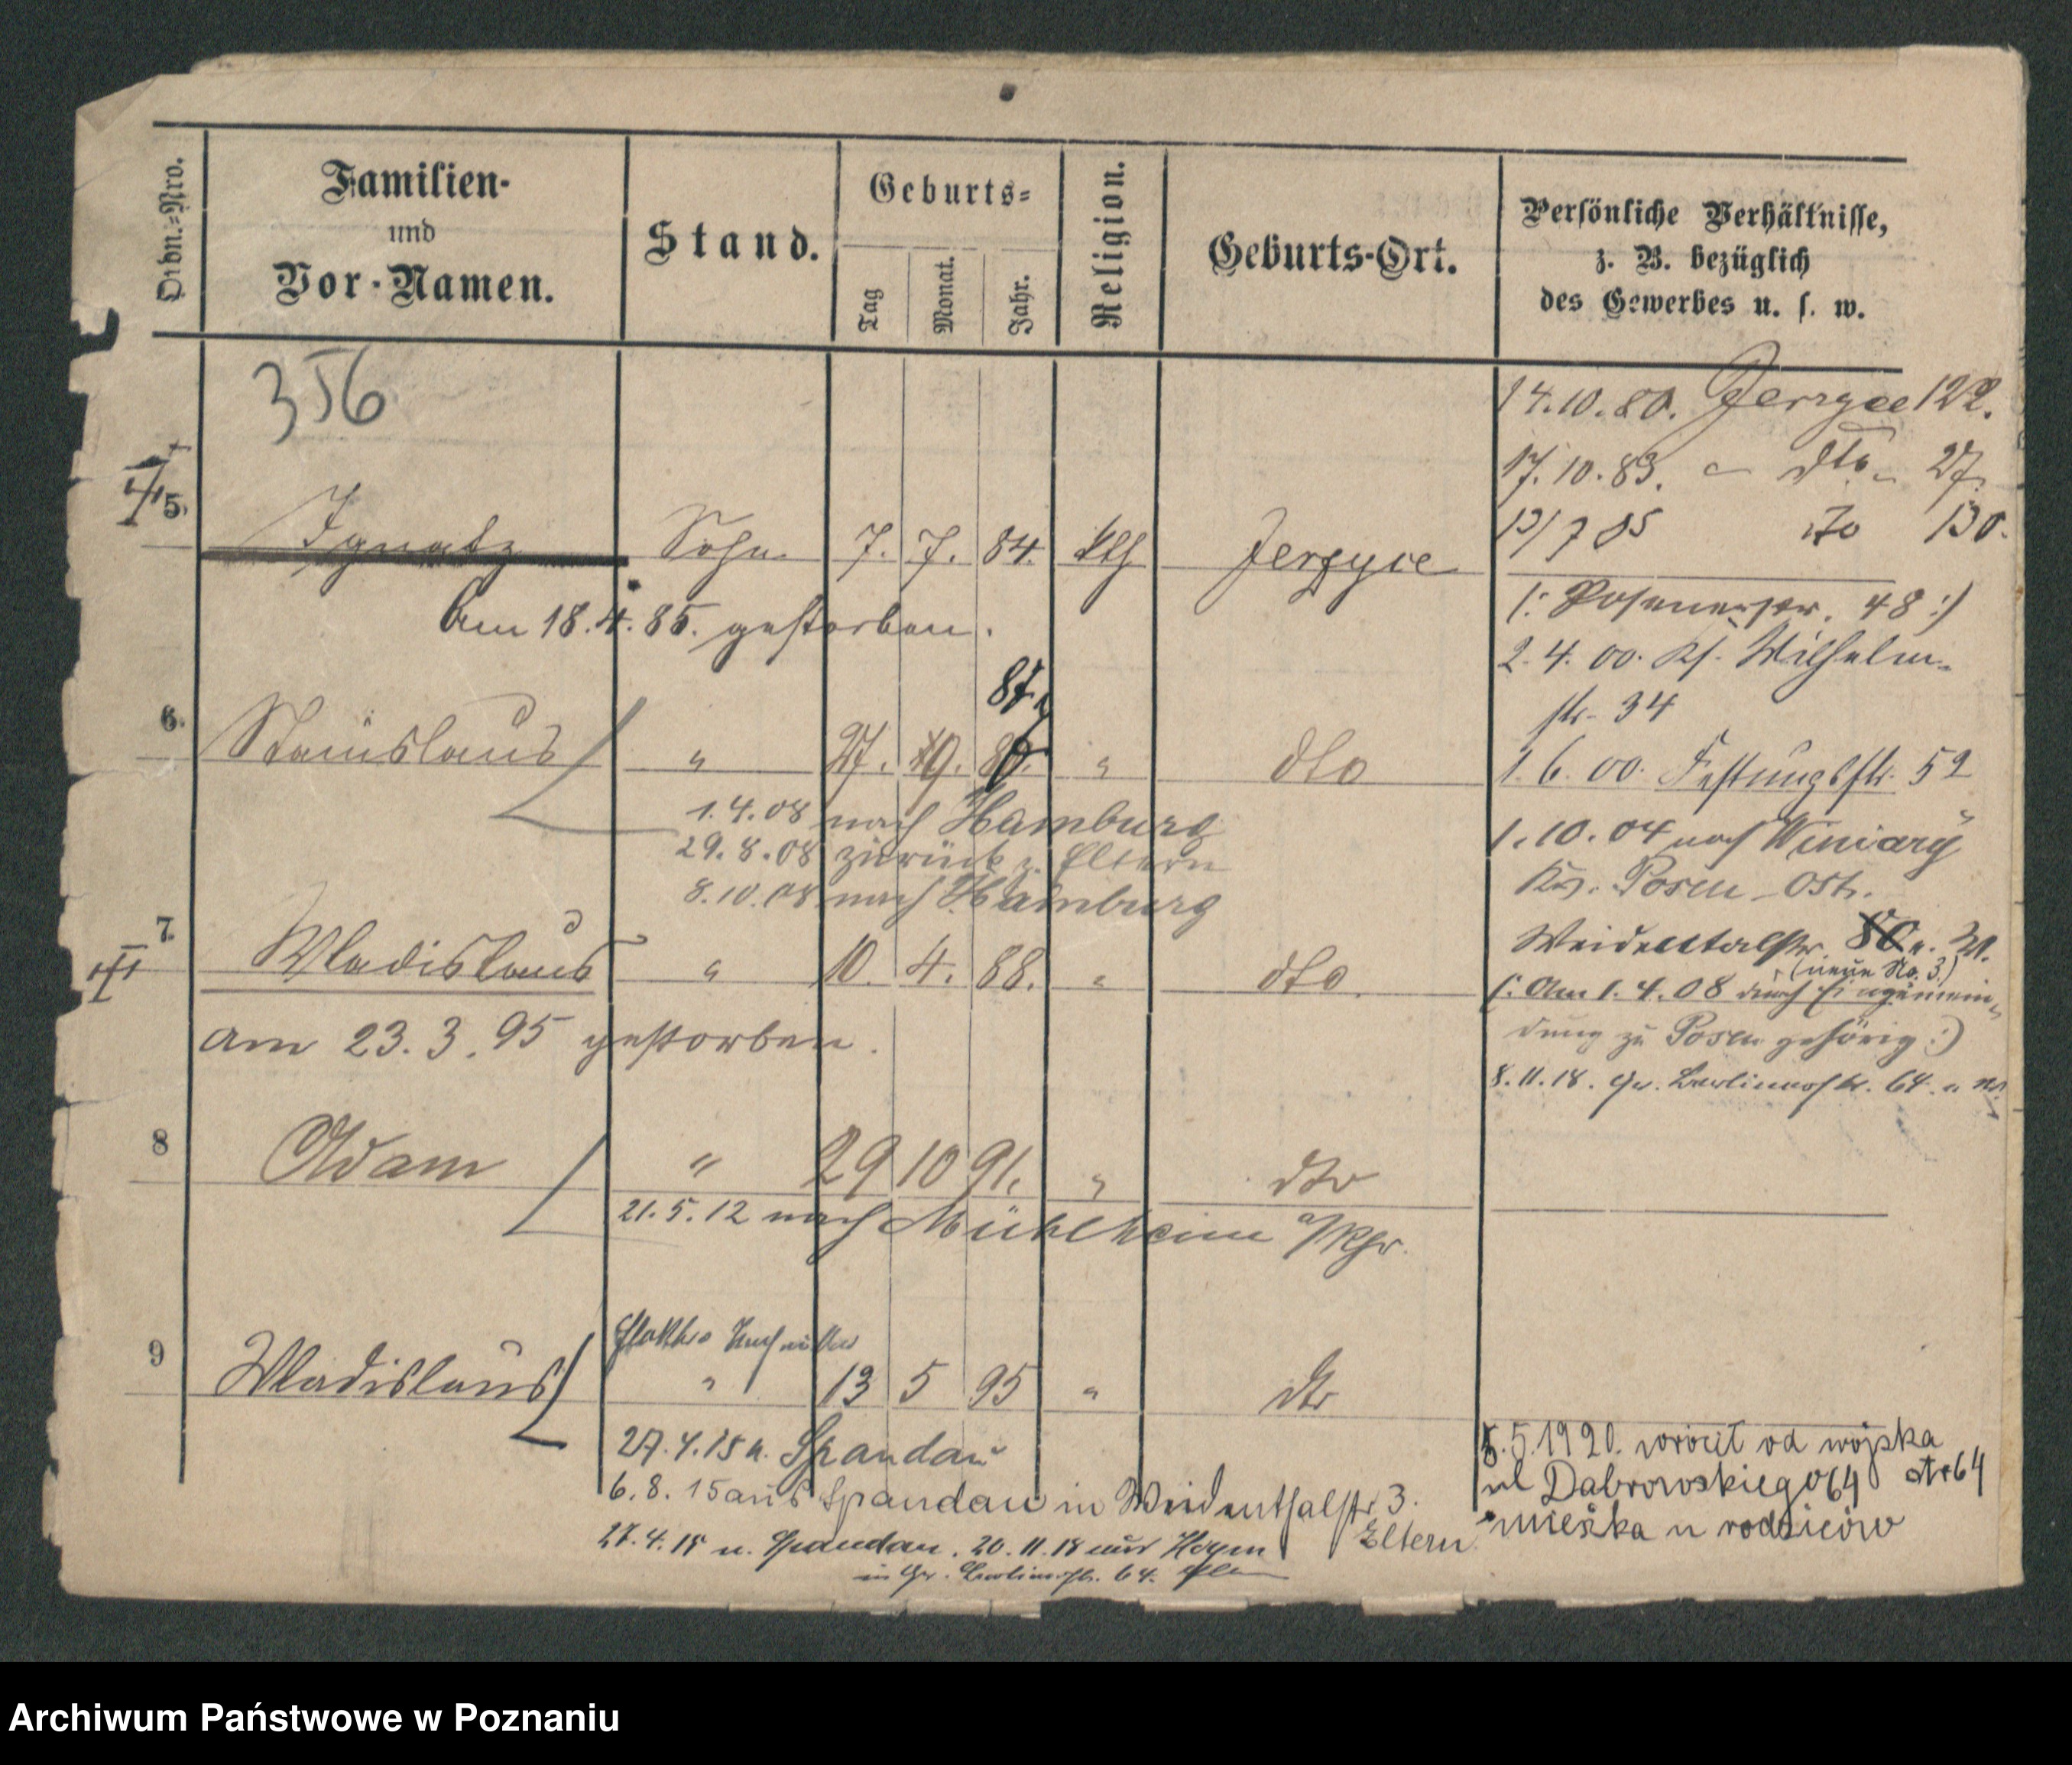 Ordn.-Nro.
Familien-
und
Vor-Namen.
Stand.
Geburts-
Tag
Monat.
Jahr.
Religion.
Geburts-Ort.
Persönliche Verhältnisse,
z. B. bezüglich
des Gewerbes u. s. w.
356
14.10.80. Jerzyce 122.
17.10.83. dto 27.
13/7 85 dto 130.
5. Ignatz Sohn 7. 7. 84. kth Jerzyce
Am 18.4.85. gestorben.
(: Posenerstr. 48 :)
2. 4. 00. Ks. Wilhelm-
str. 34
6. Stanislaus " 27. 9. 87. " dto
1. 6. 00. Festungsstr. 52
1.4.08 nach Hamburg
29.8.08 zurück z. Eltern
8.10.08 nach Hamburg
1.10.04 nach Winiary
Krs. Posen-Ost.
7. Wladislaus " 10. 4. 88. " dto.
am 23.3.95 gestorben.
Weidentalstr. 80
(neue No. 3)
(: Am 1.4.08 durch Eingemein-
dung zu Posen gehörig :)
8.11.18. Gr. Berlinerstr. 64.
8 Adam " 29 10 91. " dto
21.5.12 nach Mühlheim a/Rhr.
9 Wladislaus " 13 5 95 " dto
27.4.15 n. Spandau
6.8.15 aus Spandau in Weidenthalstr 3.
Eltern
27.4.15 n. Spandau. 20.11.18 aus
in Gr. Berlinerstr. 64.
5.5.1920. wrócił od wojska
ul Dabrowskiego 64 str 64
mieszka u rodziców
Archiwum Państwowe w Poznaniu